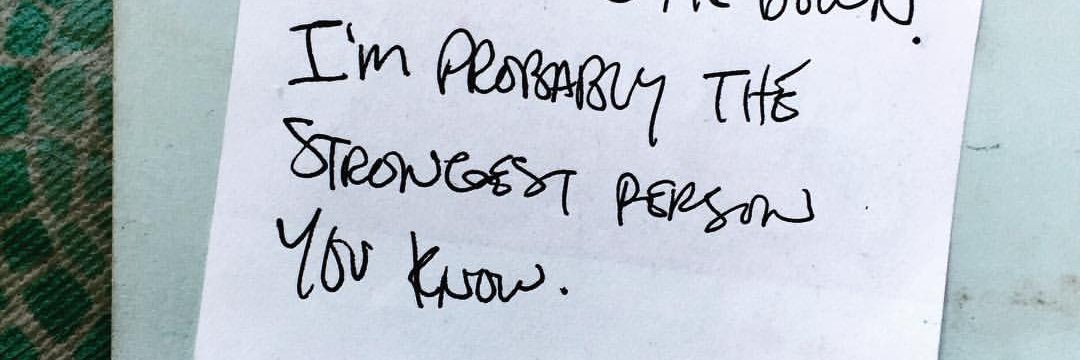 DOWN.
I'm PROBABLY THE
STRONGEST PERSON
YOU KNOW.